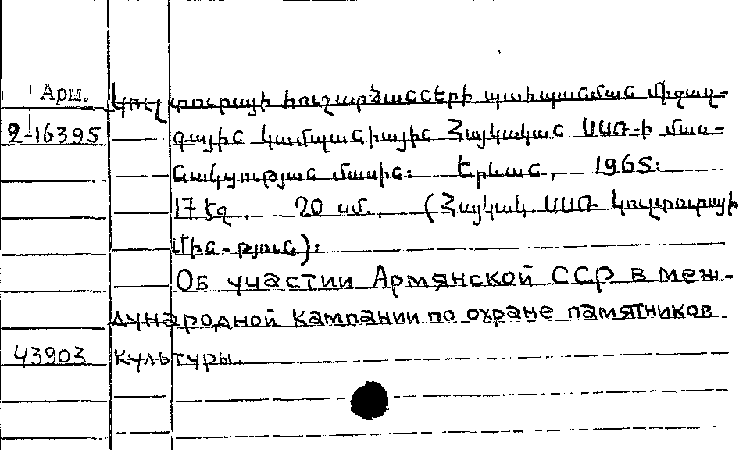 Арм. Կուլտուրայի հուշարձանների պահպանման միջազ-
9-16395 գային կամպանիային Հայկական ՍՍՌ-ի մաս-
նակցության մասին: Երևան, 1965:
17 էջ. 20 սմ. (Հայկակ. ՍՍՌ կուլտուրայի
մին-թյուն):
Об участии Армянской ССР в меж-
дународной кампании по охране памятников
43903 культуры.